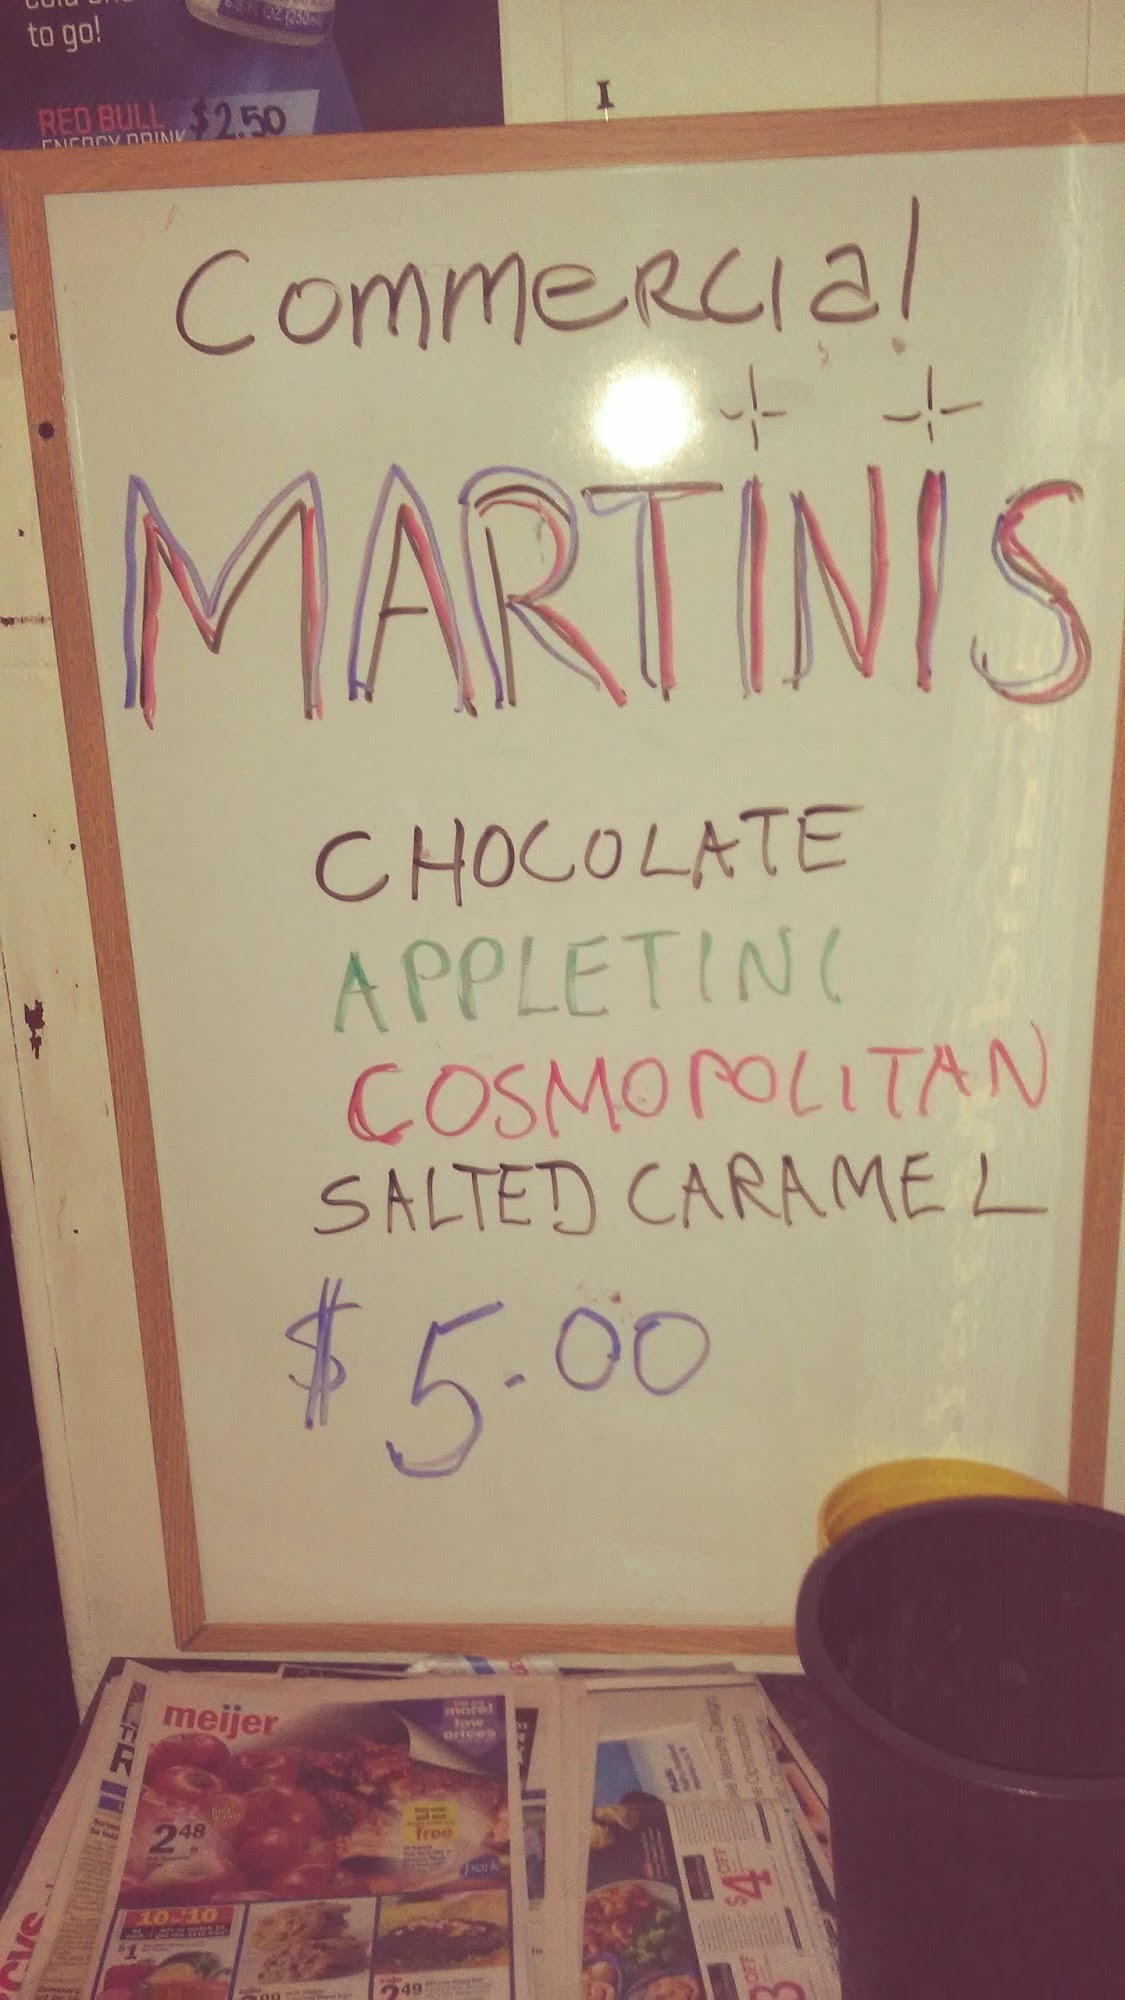 to go!
RED BULL $2.50
ENERGY DRINK
I
Commercial
MARTINIS
CHOCOLATE
APPLETINI
COSMOPOLITAN
SALTED CARAMEL
$5.00
meijer
more!
low
prices
2 48
free
pork
10 for 10
$1
2 49
$4 OFF
CVS